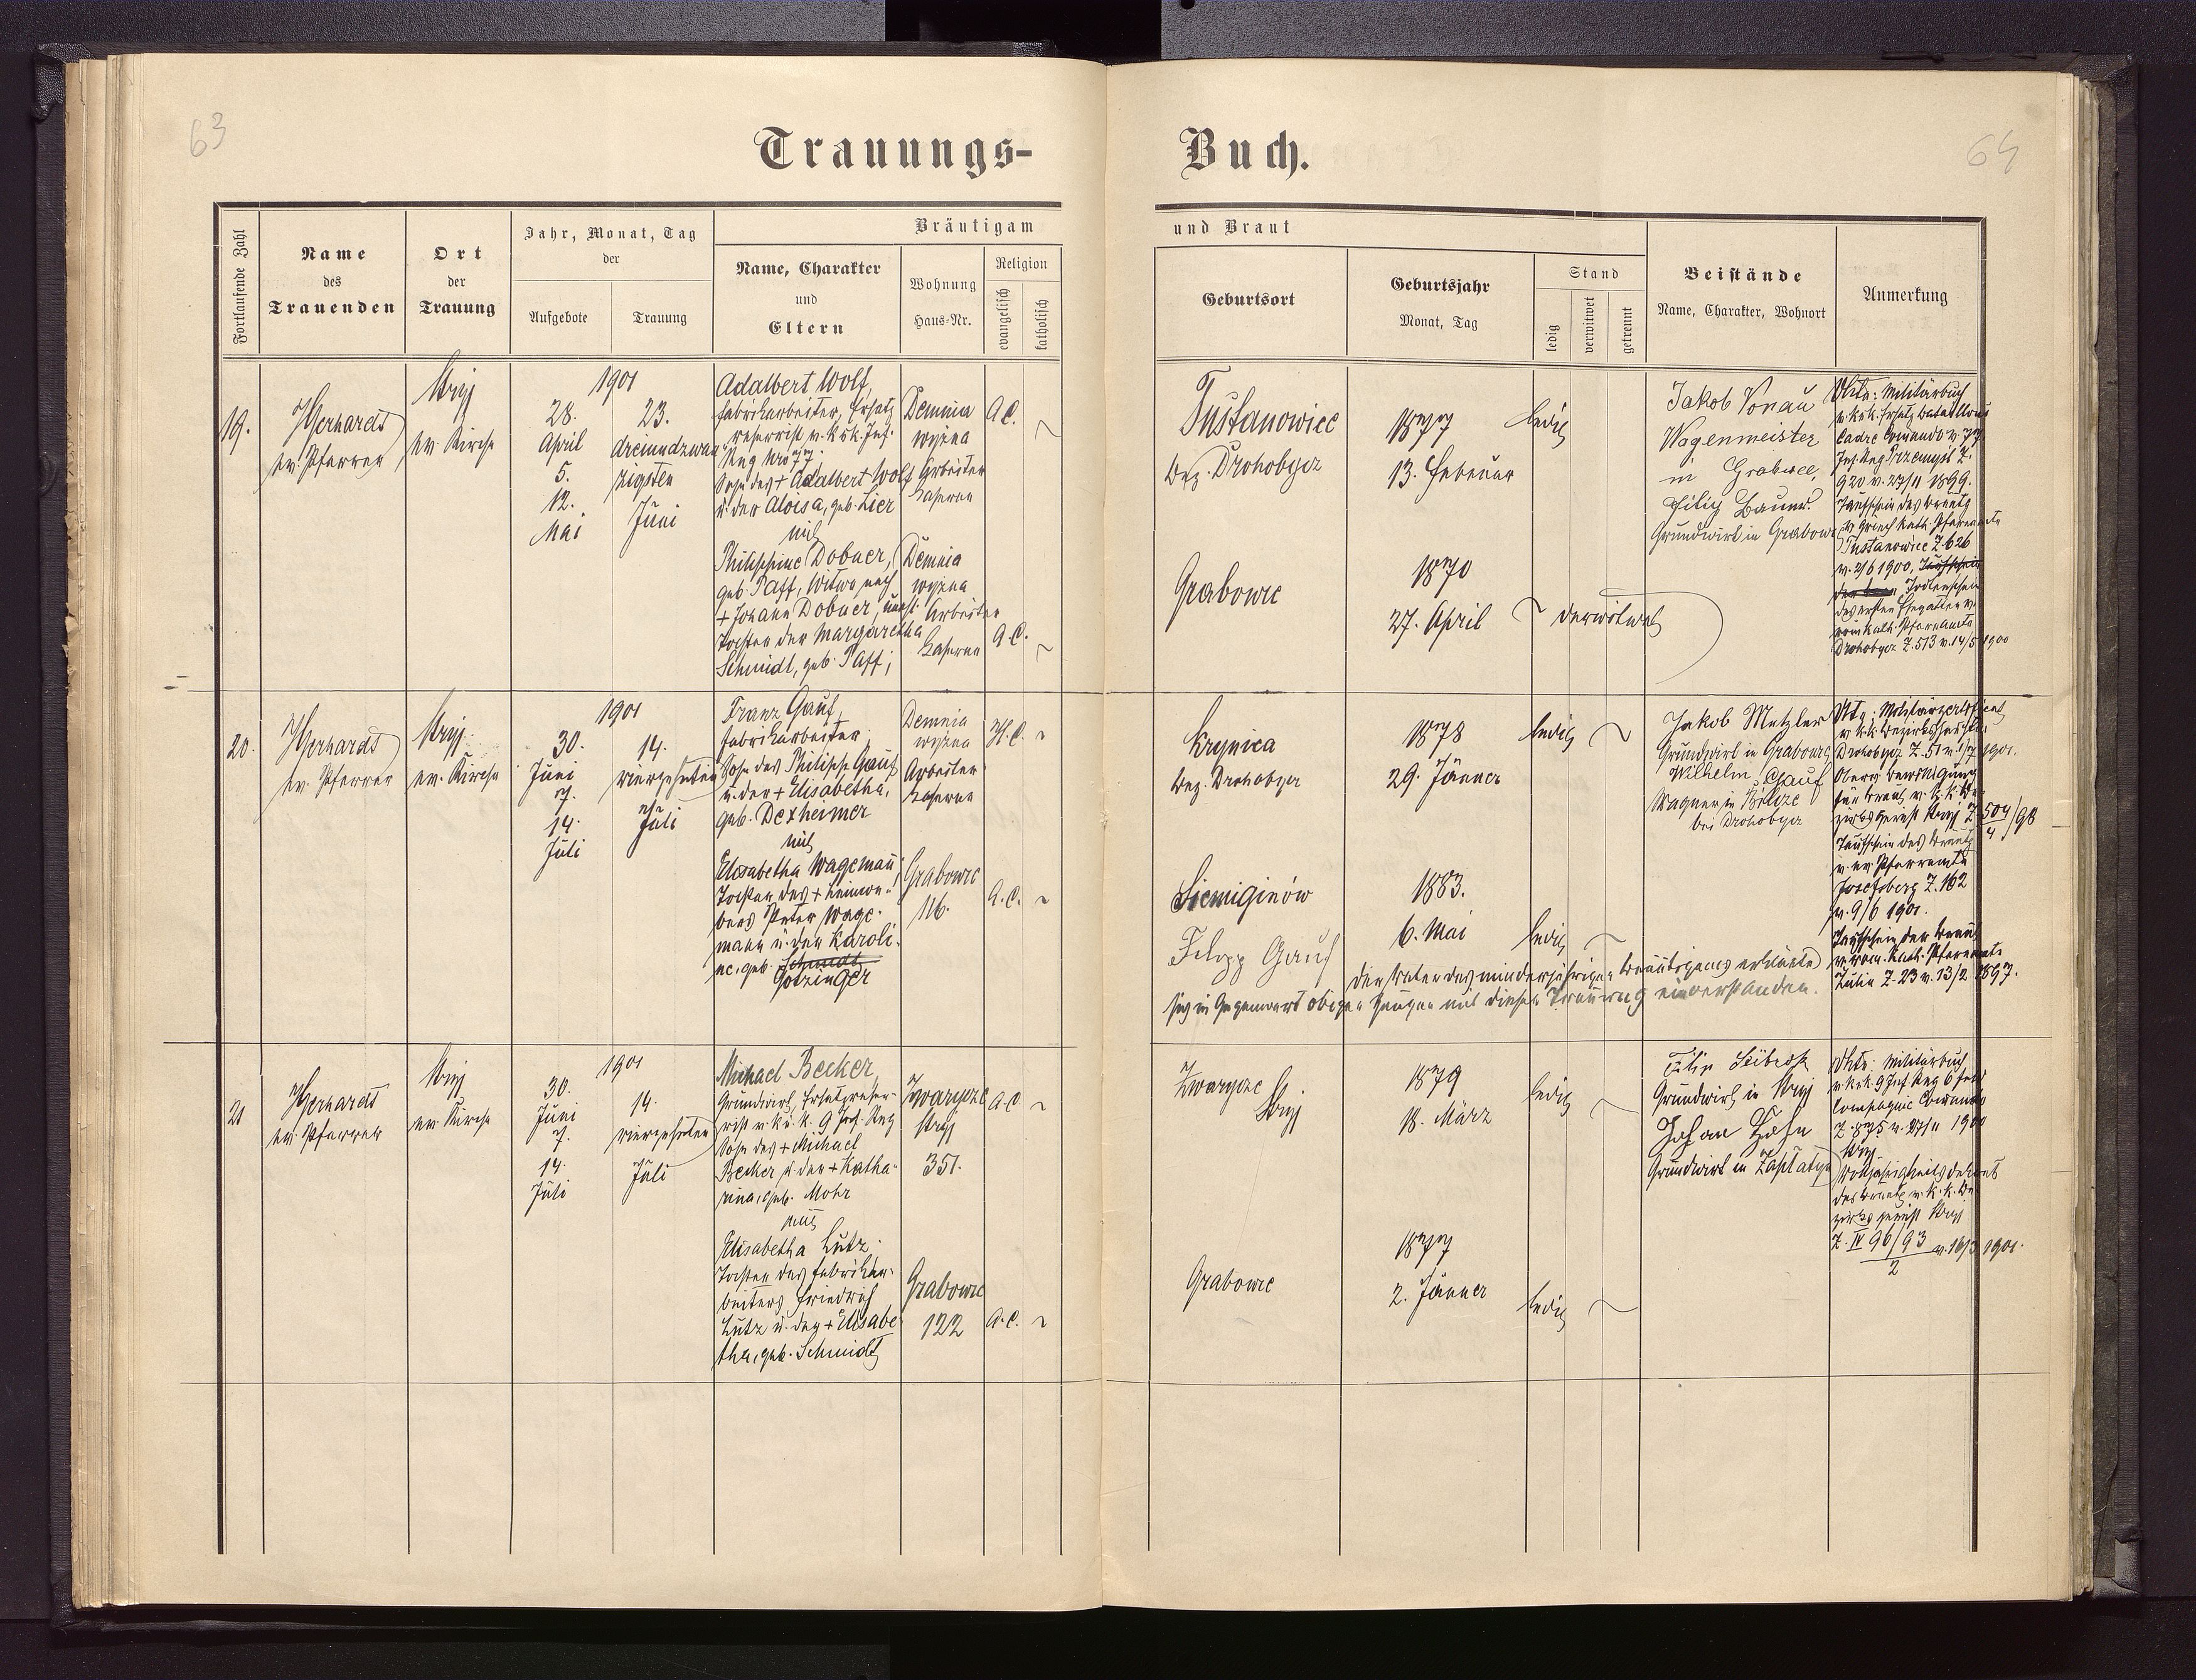 63
64
Trauungs-
Buch.
Fortlaufende Zahl
Name
des
Trauenden
Ort
der
Trauung
Jahr, Monat, Tag
der
Aufgebote
Trauung
Bräutigam
Name, Charakter
und
Eltern
Wohnung
Haus-Nr.
Religion
evangelisch
katholisch
und Braut
Geburtsort
Geburtsjahr
Monat, Tag
Stand
ledig
verwitwet
getrennt
Beistände
Name, Charakter, Wohnort
Anmerkung
19.
Gerhardt
ev. Pfarrer
Stryj
ev. Kirche
1901
28.
April
5.
12.
Mai
23.
dreiundzwan
zigsten
Juni
Adalbert Wolf,
Fabriksarbeiter, Ersatz
reservist v. k.k. Inf.
Reg Nro 77.
Sohn des + Adalbert Wolf
u. der Aloisa, geb. Lier
mit
Philippine Dobner,
geb. Paff, Witwe nach
+ Johann Dobner,
Tochter der Margaretha
Schmidt, geb. Paff;
Demnia
wyżna
Arbeiter
Kaserne
A.C.
Demnia
wyżna
Arbeiter
Kaserne
A.C.
Tustanowice
Bez. Drohobycz
1877
13. Februar
ledig
Grabowce
1870
27. April
verwitwet
Jakob Vonau
Wagenmeister
in Grabowce,
Filip Baum
Grundwirt in Grabowce
Akta: Militärbuch
v. k.k. Ersatz Bataillons
Cadre Comando v. 77
Inf. Reg Przemyśl Z.
920 v. 27/11 1899.
Taufschein des Bräutg
v. Griech kath. Pfarramte
Tustanowice Z. 626
v. 2/6 1900.
Todtenschein
des ersten Ehegatten v.
röm kath. Pfarramte
Drohobycz Z. 513 v. 14/5 1900
20.
Gerhardt
ev. Pfarrer
Stryj
ev. Kirche
1901
30.
Juni
7.
14.
Juli
14.
vierzehnten
Juli
Franz Gauf,
Fabriksarbeiter,
Sohn des Philipp Gauf
u. der + Elisabetha,
geb. Dexheimer
mit
Elisabetha Wagemann
Tochter des + Leinwe-
bers Peter Wage-
mann u. der Karoli-
ne, geb. Schmidt
Götzinger
Demnia
wyżna
Arbeiter
Kaserne
H.C.
Grabowce
116.
A.C.
Krynica
Bez. Drohobycz
1878
29. Jänner
ledig
Siemiginów
1883.
6. Mai
ledig
Filipp Gauf
der Vater des minderjährigen Bräutigams erklärte
sich in Gegenwart obiger Zeugen mit dieser Trauung einverstanden.
Jakob Metzler
Grundwirt in Grabowce
Wilhelm Gauf
Wagner in Bilcze
bei Drohobycz
Akta: Militärzertificat
v. k.k. Bezirkshauptm.
Drohobycz Z. 51 v. 1/7 1901.
Oberg. Bewilligung
für Braut v. k.k. Be-
zirksgericht Stryj Z. 504/98
4
Taufschein des Bräutg
v. ev. Pfarramte
Josefsberg Z. 162
v. 9/6 1901.
Taufschein der Braut
v. röm. kath. Pfarramte
Żulin Z. 23 v. 13/2 1897.
21
Gerhardt
ev. Pfarrer
Stryj
ev. Kirche
1901
30.
Juni
7.
14.
Juli
14.
vierzehnten
Juli
Michael Becker,
Grundwirt, Ersatzreser-
vist v. k.u. k. 9 Inf. Reg
Sohn des + Michael
Becker u. der + Katha-
rina, geb. Mohr
mit
Elisabetha Lutz
Tochter des Fabriksar-
beiters Friedrich
Lutz u. der + Elisabe
tha, geb. Schmidt
Zwarycze
Stryj
351.
A.C.
Grabowce
122
A.C.
Zwarycze
Stryj
1879
18. März
ledig
Grabowce
1877
2. Jänner
ledig
Filip
Grundwirt in Stryj
Johan Hahn
Grundwirt in Zapłatyn
Akta: Militärbuch
v. k.k. 9 Inf. Reg 6 Feld
Compagnie Comando
Z. 875 v. 27/11 1900
Stryj
Volljährigkeitsdekret
des Bräutg v. k.k. Be-
zirksgericht Stryj
Z. IV 96/93 v. 16/3 1901.
2